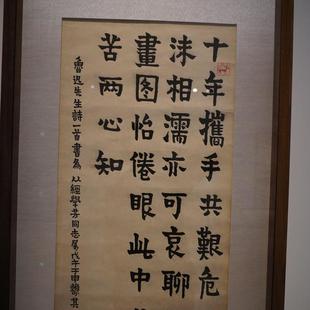 十年攜手共艱危
沫相濡亦可哀聊
畫图怡倦眼此中
苦两心知
魯迅先生詩一首書為
學芳同志屬戊午